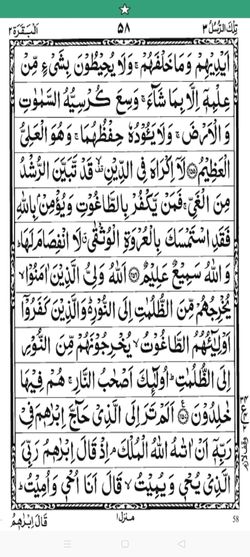 تِلْكَ الرُّسُلُ ٣ ٥٨ اَلْبَقَرَة ٢
اَیْدِیْهِمْ وَمَا خَلْفَهُمْ ۚ وَلَا یُحِیْطُوْنَ بِشَیْءٍ مِّنْ
عِلْمِهٖۤ اِلَّا بِمَا شَآءَ ۚ وَسِعَ كُرْسِیُّهُ السَّمٰوٰتِ
وَالْاَرْضَ ۚ وَلَا یَـُٔوْدُهٗ حِفْظُهُمَا ۚ وَهُوَ الْعَلِیُّ
الْعَظِیْمُ ﴿۲۵۵﴾ لَاۤ اِكْرَاهَ فِی الدِّیْنِ ۙ قَدْ تَّبَیَّنَ الرُّشْدُ
مِنَ الْغَیِّ ۚ فَمَنْ یَّكْفُرْ بِالطَّاغُوْتِ وَیُؤْمِنْۢ بِاللّٰهِ
فَقَدِ اسْتَمْسَكَ بِالْعُرْوَةِ الْوُثْقٰی ۗ لَا انْفِصَامَ لَهَا ؕ
وَاللّٰهُ سَمِیْعٌ عَلِیْمٌ ﴿۲۵۶﴾ اَللّٰهُ وَلِیُّ الَّذِیْنَ اٰمَنُوْا ۙ
یُخْرِجُهُمْ مِّنَ الظُّلُمٰتِ اِلَی النُّوْرِ ؕ وَالَّذِیْنَ كَفَرُوْۤا
اَوْلِیٰٓـُٔهُمُ الطَّاغُوْتُ ۙ یُخْرِجُوْنَهُمْ مِّنَ النُّوْرِ
اِلَی الظُّلُمٰتِ ؕ اُولٰٓئِكَ اَصْحٰبُ النَّارِ ۚ هُمْ فِیْهَا
خٰلِدُوْنَ ﴿۲۵۷﴾ اَلَمْ تَرَ اِلَی الَّذِیْ حَآجَّ اِبْرٰهٖمَ فِیْ
رَبِّهٖۤ اَنْ اٰتٰىهُ اللّٰهُ الْمُلْكَ ۘ اِذْ قَالَ اِبْرٰهٖمُ رَبِّیَ
الَّذِیْ یُحْیٖ وَیُمِیْتُ ۙ قَالَ اَنَا اُحْیٖ وَاُمِیْتُ ؕ
قَالَ اِبْرٰهٖمُ منزل ١ 58